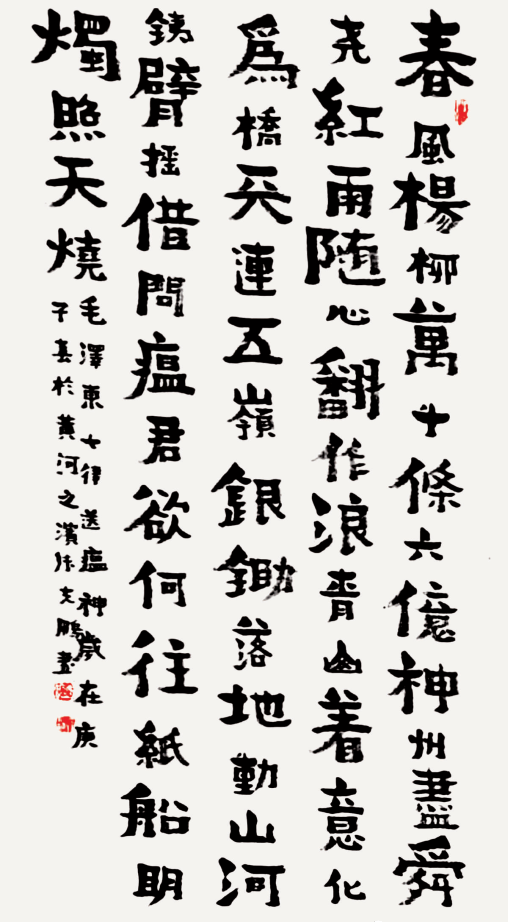 春風楊柳萬千條六億神州盡舜
尧紅雨随心翻作浪青山着意化
爲橋天連五嶺銀鋤落地動山河
銕臂摇借問瘟君欲何往紙船明
燭照天燒
毛澤東七律送瘟神歲在庚
子於黄河之濱鵬書